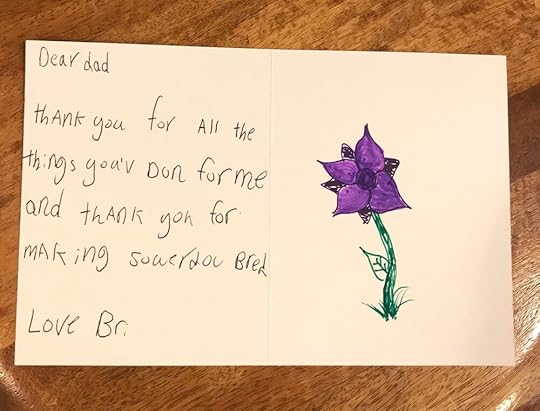 Dear dad
thANK you for All the
things you'v DON for me
and thANK you for
MAKing sowerdou Bred
Love Br.